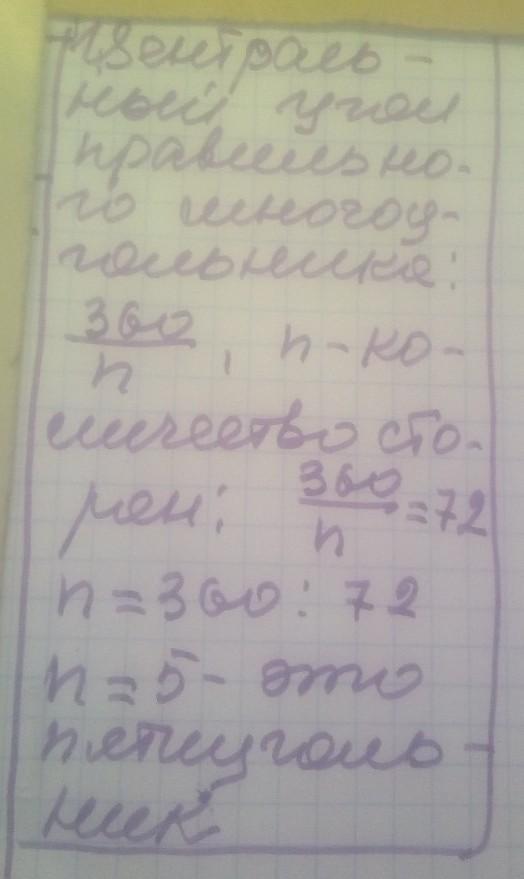 Централь-
ный угол
правильно-
го многоу-
гольника:
360/n, n - ко-
личество сто-
рон; 360/n = 72
n = 360 : 72
n = 5 - это
пятиуголь-
ник